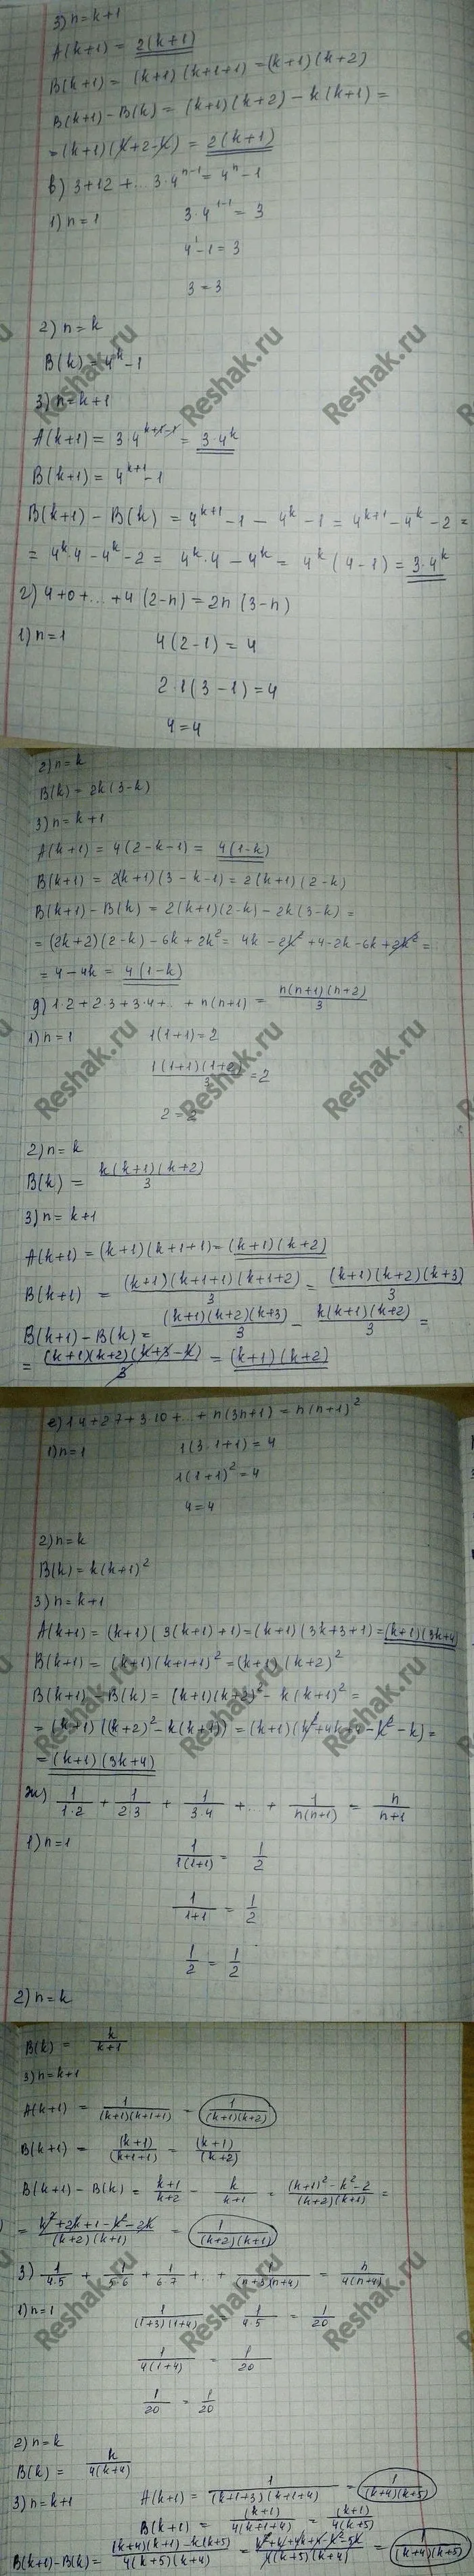 3) n=k+1
A(k+1) = 2(k+1)
B(k+1) = (k+1)(k+1+1) = (k+1)(k+2)
B(k+1) - B(k) = (k+1)(k+2) - k(k+1) =
= (k+1)(k+2-k) = 2(k+1)
в) 3+12+... 3·4^{n-1} = 4^n - 1
1) n=1 3·4^{1-1} = 3
4^1 - 1 = 3
3 = 3
2) n=k
B(k) = 4^k - 1
3) n=k+1
A(k+1) = 3·4^{k+1-1} = 3·4^k
B(k+1) = 4^{k+1} - 1
B(k+1) - B(k) = 4^{k+1} - 1 - 4^k - 1 = 4^{k+1} - 4^k - 2 =
= 4^k·4 - 4^k - 2 = 4^k·4 - 4^k = 4^k(4-1) = 3·4^k
г) 4+0+...+4(2-n) = 2n(3-n)
1) n=1 4(2-1) = 4
2·1(3-1) = 4
4=4
2) n=k
B(k) = 2k(3-k)
3) n=k+1
A(k+1) = 4(2-k-1) = 4(1-k)
B(k+1) = 2(k+1)(3-k-1) = 2(k+1)(2-k)
B(k+1) - B(k) = 2(k+1)(2-k) - 2k(3-k) =
= (2k+2)(2-k) - 6k + 2k² = 4k - 2k² + 4 - 2k - 6k + 2k² =
= 4 - 4k = 4(1-k)
д) 1·2 + 2·3 + 3·4 + .. + n(n+1) = n(n+1)(n+2)/3
1) n=1 1(1+1) = 2
1(1+1)(1+2)/3 = 2
2 = 2
2) n=k
B(k) = k(k+1)(k+2)/3
3) n=k+1
A(k+1) = (k+1)(k+1+1) = (k+1)(k+2)
B(k+1) = (k+1)(k+1+1)(k+1+2)/3 = (k+1)(k+2)(k+3)/3
B(k+1) - B(k) = (k+1)(k+2)(k+3)/3 - k(k+1)(k+2)/3 =
= (k+1)(k+2)(k+3-k)/3 = (k+1)(k+2)
е) 1·4 + 2·7 + 3·10 + .. + n(3n+1) = n(n+1)²
1) n=1 1(3·1+1) = 4
1(1+1)² = 4
4=4
2) n=k
B(k) = k(k+1)²
3) n=k+1
A(k+1) = (k+1)(3(k+1)+1) = (k+1)(3k+3+1) = (k+1)(3k+4)
B(k+1) = (k+1)(k+1+1)² = (k+1)(k+2)²
B(k+1) - B(k) = (k+1)(k+2)² - k(k+1)² =
= (k+1)((k+2)² - k(k+1)) = (k+1)(k²+4k+4-k²-k) =
= (k+1)(3k+4)
ж) 1/1·2 + 1/2·3 + 1/3·4 + .. + 1/n(n+1) = n/n+1
1) n=1 1/1(1+1) = 1/2
1/1+1 = 1/2
1/2 = 1/2
2) n=k
B(k) = k/k+1
3) n=k+1
A(k+1) = 1/(k+1)(k+1+1) = 1/(k+1)(k+2)
B(k+1) = (k+1)/(k+1+1) = (k+1)/(k+2)
B(k+1) - B(k) = k+1/k+2 - k/k+1 = (k+1)²-k²-2/(k+2)(k+1) =
= k²+2k+1-k²-2k/(k+2)(k+1) = 1/(k+2)(k+1)
З) 1/4·5 + 1/5·6 + 1/6·7 + .. + 1/(n+3)(n+4) = n/4(n+4)
1) n=1 1/(1+3)(1+4) = 1/4·5 = 1/20
1/4(1+4) = 1/20
1/20 = 1/20
2) n=k
B(k) = k/4(k+4)
3) n=k+1 A(k+1) = 1/(k+1+3)(k+1+4) = 1/(k+4)(k+5)
B(k+1) = (k+1)/4(k+1+4) = (k+1)/4(k+5)
B(k+1)-B(k) = (k+4)(k+1)-k(k+5)/4(k+5)(k+4) = k²+k+4k+4-k²-5k/4(k+5)(k+4) = 1/(k+4)(k+5)
Reshak.ru